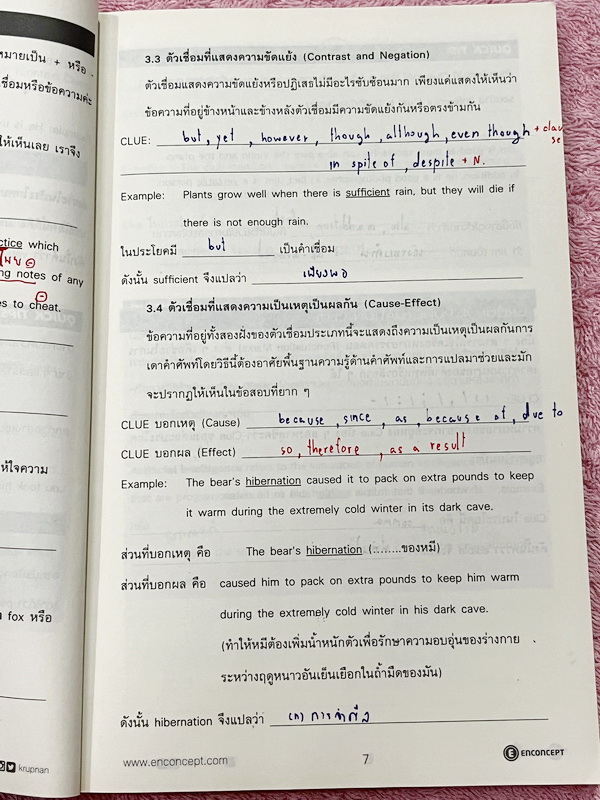 หมายเป็น + หรือ
เชื่อมหรือข้อความค่ะ
ให้เห็นเลย เราจึง
ctice which
ng notes of any
es to cheat.
ห้ใจความ
fox หรือ
krupnan
3.3 ตัวเชื่อมที่แสดงความขัดแย้ง (Contrast and Negation)
ตัวเชื่อมแสดงความขัดแย้งหรือปฏิเสธไม่มีอะไรซับซ้อนมาก เพียงแค่แสดงให้เห็นว่า
ข้อความที่อยู่ข้างหน้าและข้างหลังตัวเชื่อมมีความขัดแย้งกันหรือตรงข้ามกัน
CLUE: but, yet , however , though , although , even though + clau
se
in spite of , despite + N.
Example: Plants grow well when there is sufficient rain, but they will die if
there is not enough rain.
ในประโยคมี but เป็นคำเชื่อม
ดังนั้น sufficient จึงแปลว่า เพียงพอ
3.4 ตัวเชื่อมที่แสดงความเป็นเหตุเป็นผลกัน (Cause-Effect)
ข้อความที่อยู่ทั้งสองฝั่งของตัวเชื่อมประเภทนี้จะแสดงถึงความเป็นเหตุเป็นผลกันการ
เดาคำศัพท์โดยวิธีนี้ต้องอาศัยพื้นฐานความรู้ด้านคำศัพท์และการแปลมาช่วยและมัก
จะปรากฏให้เห็นในข้อสอบที่ยาก ๆ
CLUE บอกเหตุ (Cause) because , since , as , because of , due to
CLUE บอกผล (Effect) so, therefore , as a result
Example: The bear's hibernation caused it to pack on extra pounds to keep
it warm during the extremely cold winter in its dark cave.
ส่วนที่บอกเหตุ คือ The bear's hibernation (........ของหมี)
ส่วนที่บอกผล คือ caused him to pack on extra pounds to keep him warm
during the extremely cold winter in his dark cave.
(ทำให้หมีต้องเพิ่มน้ำหนักตัวเพื่อรักษาความอบอุ่นของร่างกาย
ระหว่างฤดูหนาวอันเย็นเยือกในถ้ำมืดของมัน)
ดังนั้น hibernation จึงแปลว่า (n) การจำศีล
www.enconcept.com 7 ENCONCEPT